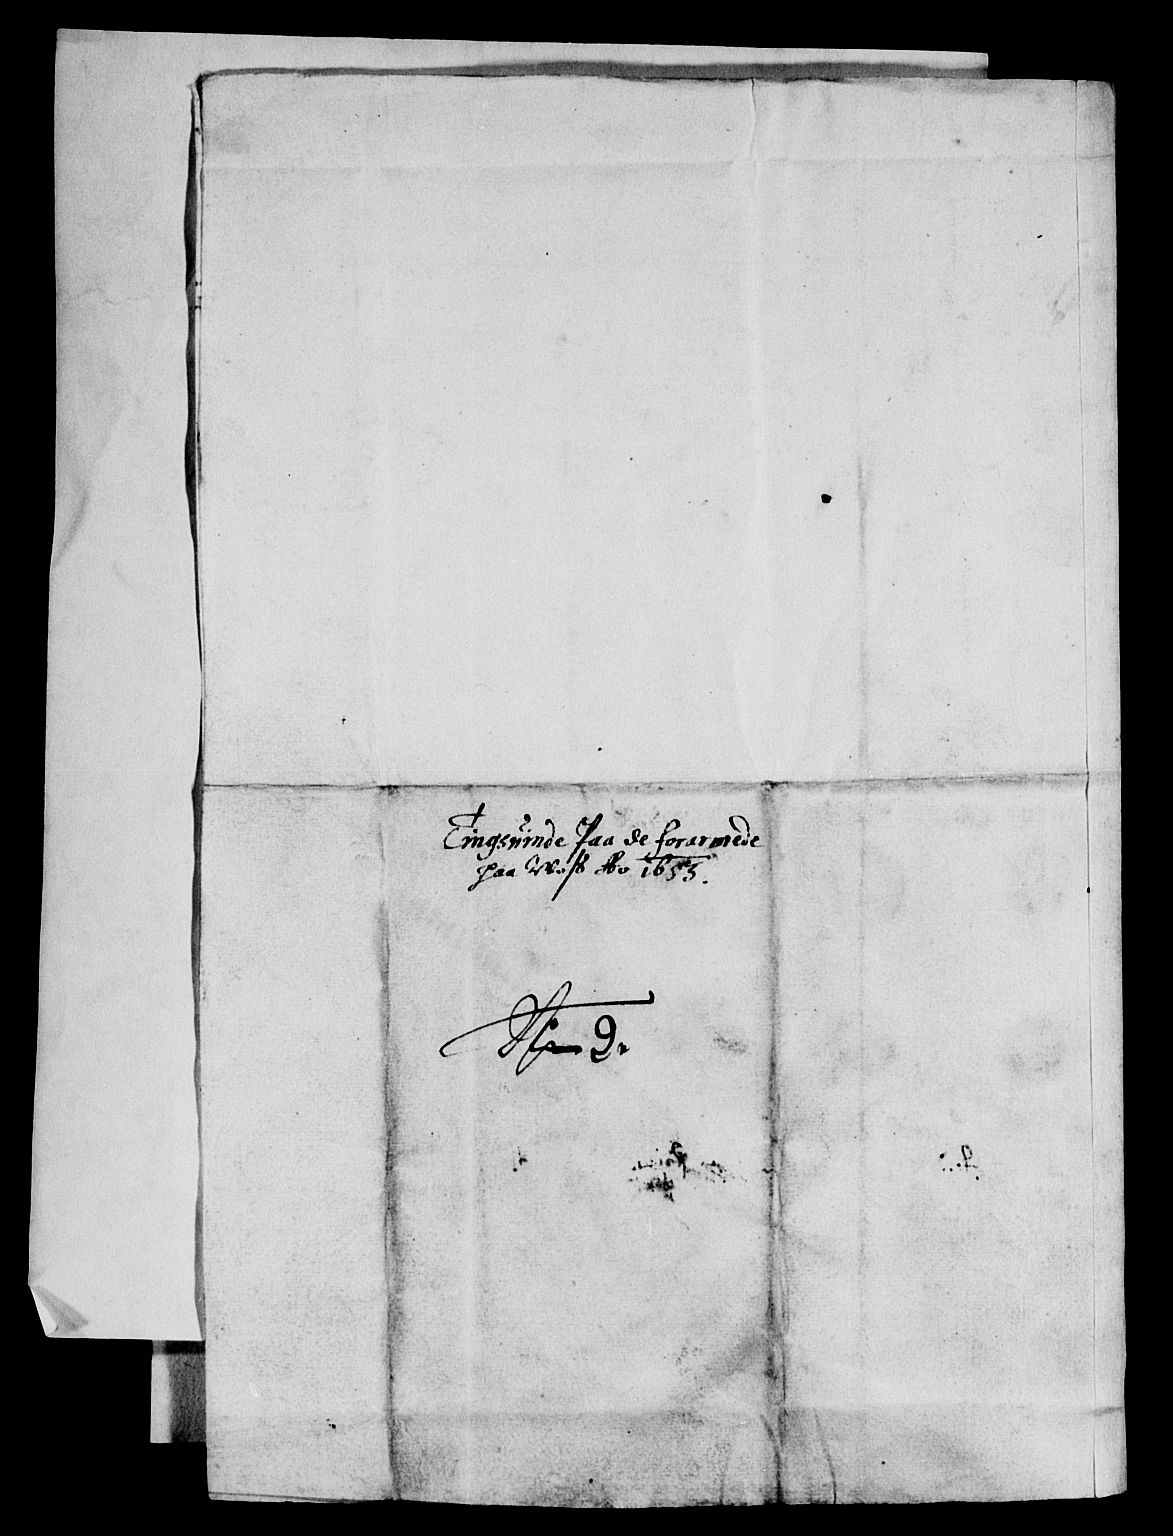 Tingsuinde Paa de forarmede
paa Woss Ao 1653.
No 9.